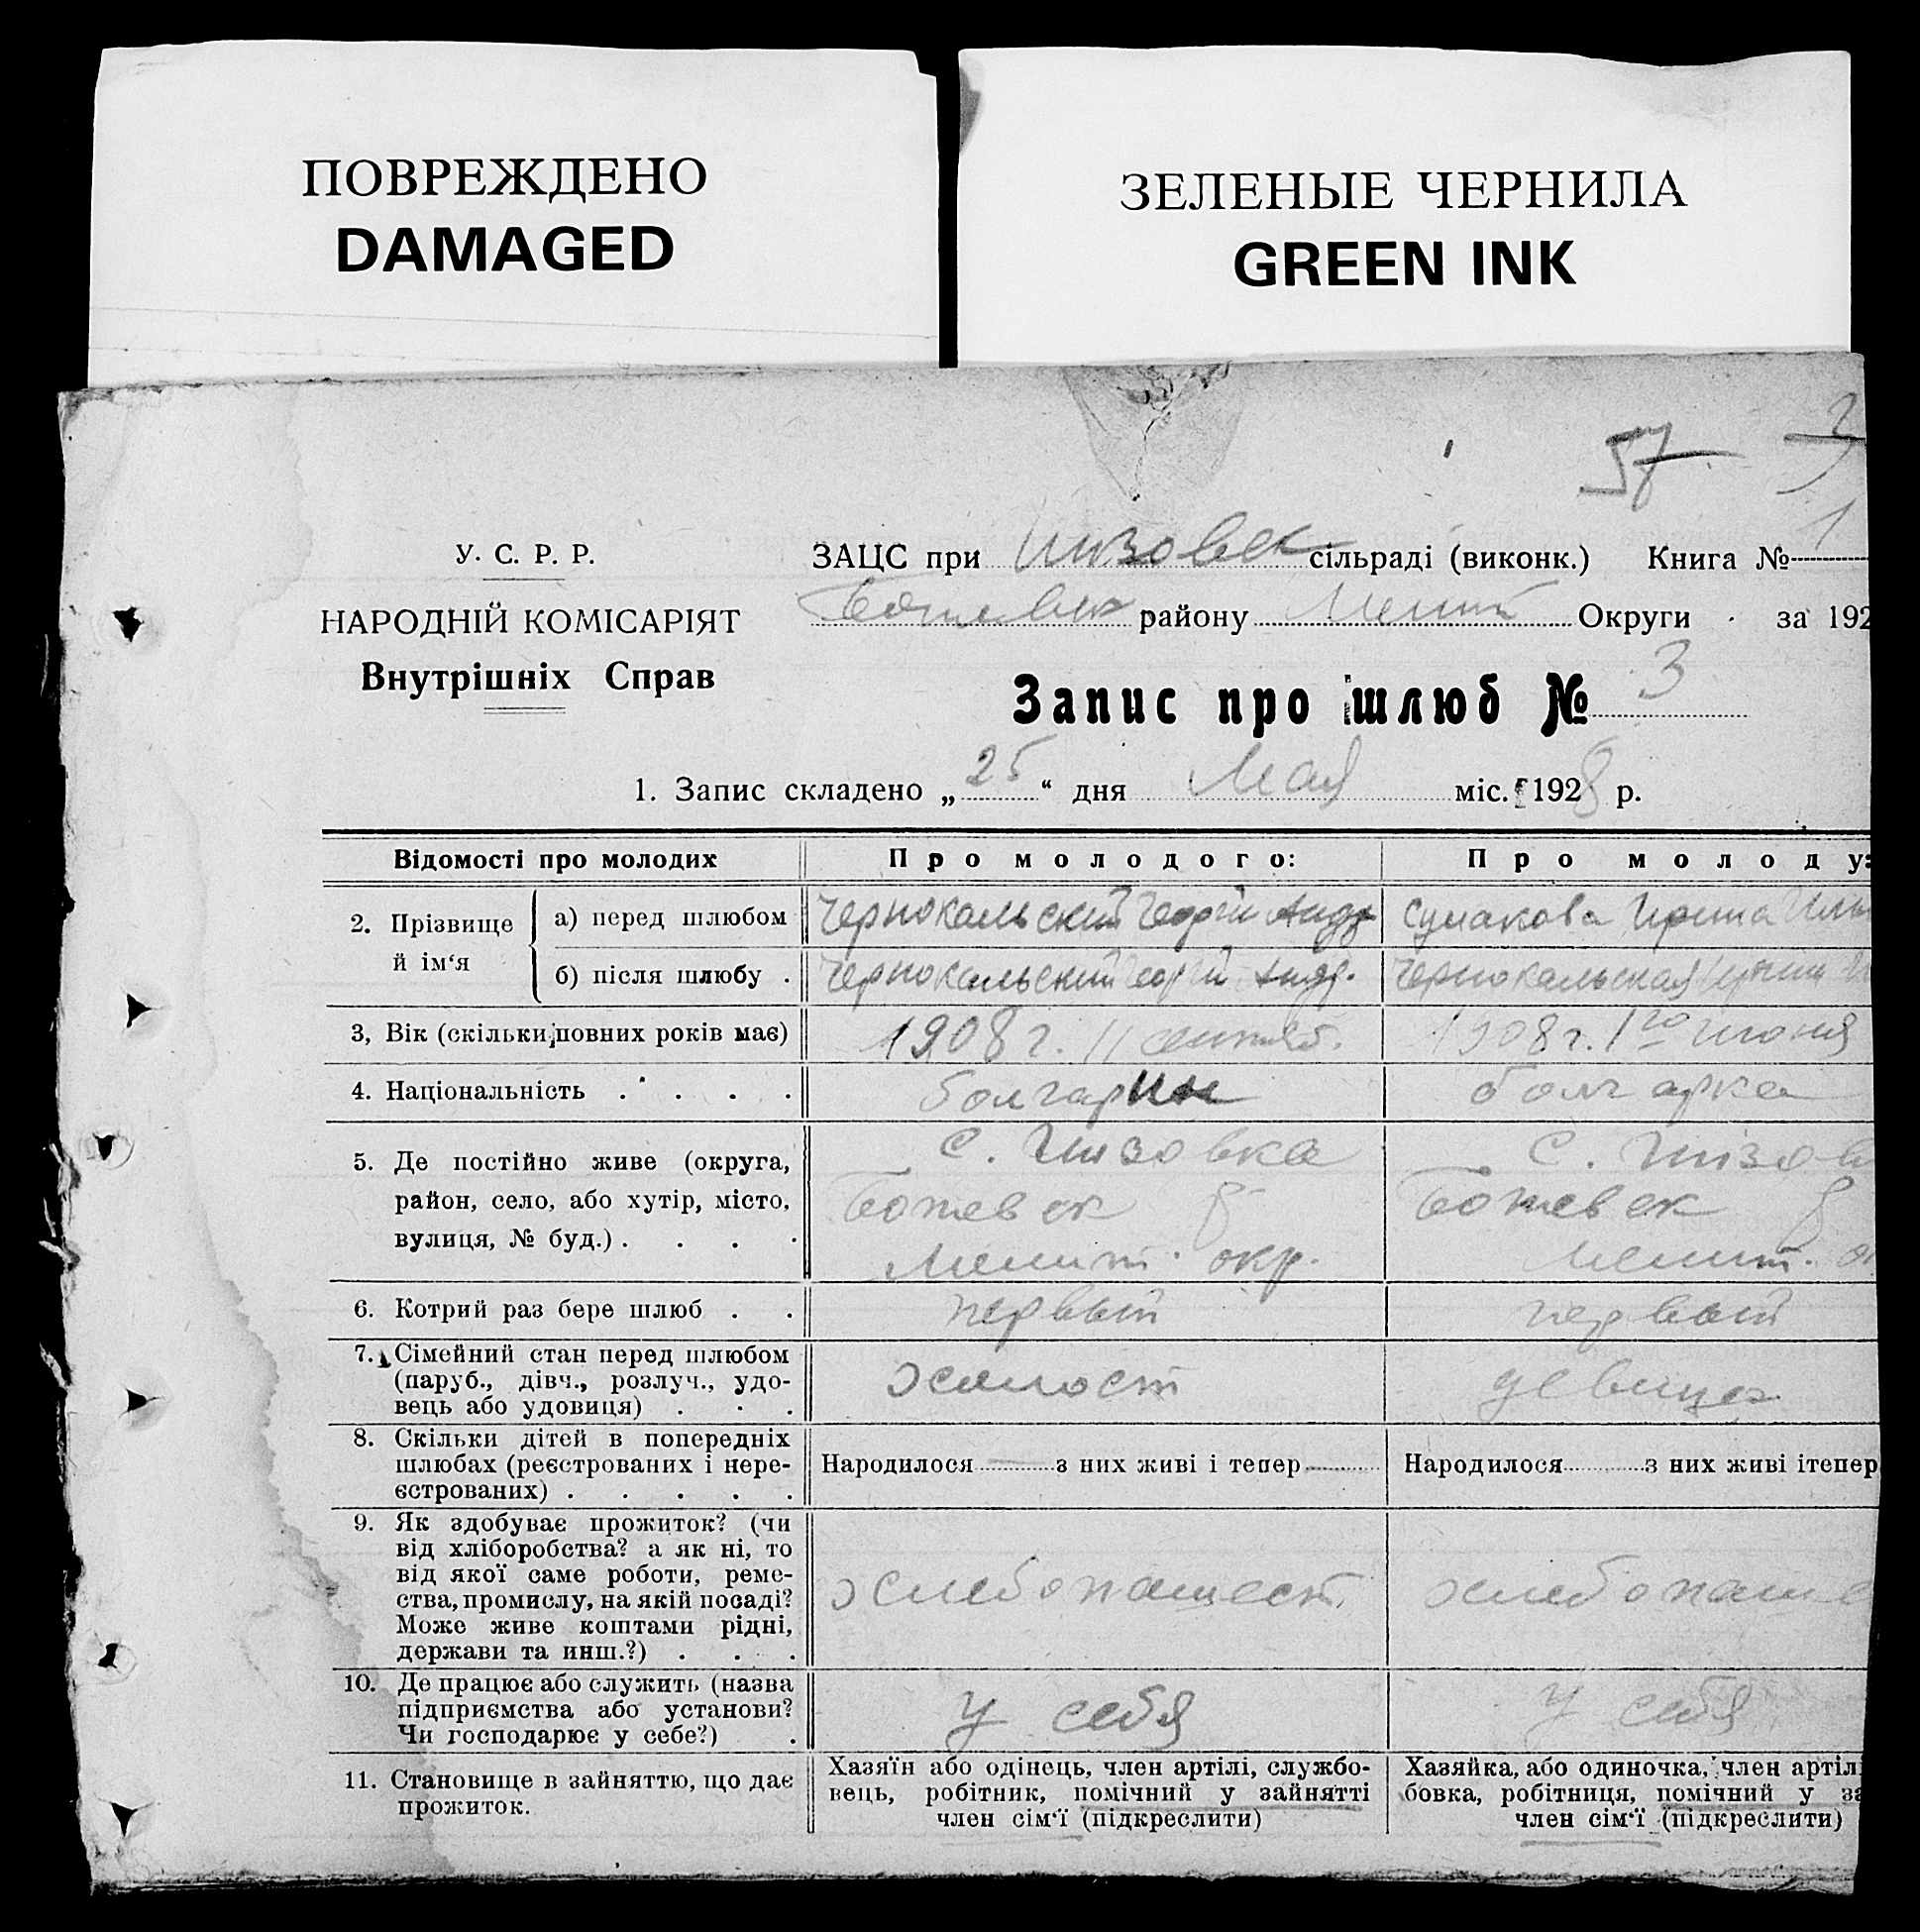 ПОВРЕЖДЕНО
DAMAGED
ЗЕЛЕНЫЕ ЧЕРНИЛА
GREEN INK
57 3
У. С. Р. Р.
НАРОДНІЙ КОМІСАРІЯТ
Внутрішніх Справ
ЗАЦС при сільраді (виконк.) Книга № 1
району Мелит Округи за 192
Запис про шлюб № 3
1. Запис складено „25“ дня Мая міс. 1928 р.
Відомості про молодих Про молодого: Про молоду:
2. Прізвище й ім‘я
а) перед шлюбом Чернокальский Георгій Андр Сумакова Ирина Иль
б) після шлюбу . Чернокальский Георгій Андр. Чернокальская Ирина
3, Вік (скільки повних років має) 1908 г. 11 сентяб. 1908 г. 1го июня
4. Національність . . . . болгарин болгарка
5. Де постійно живе (округа, район, село, або хутір, місто, вулиця, № буд.) . . . .
с.
Ботевск
Мелит. окр.
с.
Ботевск
Мелит. о
6. Котрий раз бере шлюб . . первый первый
7. Сімейний стан перед шлюбом
(паруб., дівч., розлуч., удо-
вець або удовиця) . . . холост девица
8. Скільки дітей в попередніх
шлюбах (реєстрованих і нере-
єстрованих) . . . . .
Народилося з них живі і тепер Народилося з них живі ітепер
9. Як здобуває прожиток? (чи
від хліборобства? а як ні, то
від якої саме роботи, реме-
ства, промислу, на якій посаді?
Може живе коштами рідні,
держави та инш.?) . . .
хлебопашест. хлебопаше
10. Де працює або служить (назва
підприємства або установи?
Чи господарює у себе?) .
у себя у себя
11. Становище в зайняттю, що дає
прожиток.
Хазяїн або одінець, член артілі, службо-
вець, робітник, помічний у зайнятті
член сім‘ї (підкреслити)
Хазяйка, або одиночка, член артіл
бовка, робітниця, помічний у за
член сім‘ї (підкреслити)